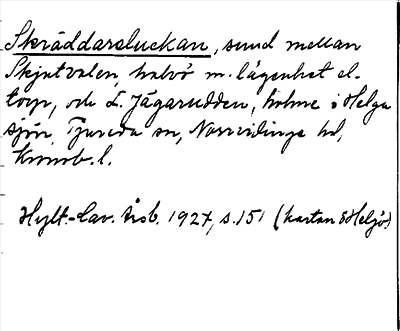 Skräddareluckan, sund mellan
Skjutvalen, halvö m. lägenhet el.
torp, och L. Jägarudden, holme i Helga
sjön, Tjureda sn, Norrvidinge hd,
Kronob. l.
Hylt.-Cav. årsb. 1927, s. 151 (kartan ö Helgö)